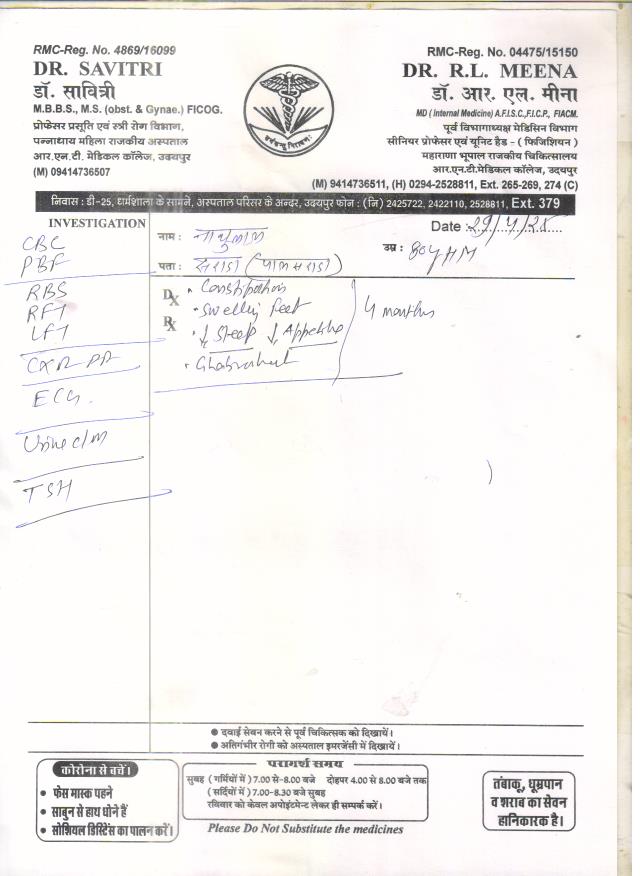 RMC-Reg. No. 4869/16099
DR. SAVITRI
डॉ. सावित्री
M.B.B.S., M.S. (obst. & Gynae.) FICOG.
प्रोफेसर प्रसूति एवं स्त्री रोग विभाग,
पन्नाधाय महिला राजकीय अस्पताल
आर.एन.टी. मेडिकल कॉलेज, उदयपुर
(M) 09414736507
RMC-Reg. No. 04475/15150
DR. R.L. MEENA
डॉ. आर. एल. मीना
MD ( Internal Medicine) A.F.I.S.C.,F.I.C.P., FIACM.
पूर्व विभागाध्यक्ष मेडिसिन विभाग
सीनियर प्रोफेसर एवं यूनिट हैड - ( फिजिशियन )
महाराणा भूपाल राजकीय चिकित्सालय
आर.एन.टी.मेडिकल कॉलेज, उदयपुर
(M) 9414736511, (H) 0294-2528811, Ext. 265-269, 274 (C)
निवास : डी-25, धर्मशाला के सामने, अस्पताल परिसर के अन्दर, उदयपुर फोन : (नि) 2425722, 2422110, 2528811, Ext. 379
INVESTIGATION
CBC
PBF
RBS
RFT
LFT
CXR PA
ECG.
Urine c/m
TSH
Date : 29/4/25
नाम :
उम्र : 80y/M
पता : सराडा (पाल सराडा)
Dx • Constipation
• Swelling feet
Rx • ↓ Sleep ↓ Appetite
• Ghabrahat
4 months
● दवाई सेवन करने से पूर्व चिकित्सक को दिखायें।
● अतिगंभीर रोगी को अस्पताल इमरजेंसी में दिखायें।
कोरोना से बचें।
• फेस मास्क पहने
• साबुन से हाथ धोने हैं
• सोशियल डिस्टेंस का पालन करें।
परामर्श समय
सुबह ( गर्मियों में ) 7.00 से-8.00 बजे दोहपर 4.00 से 8.00 बजे तक
( सर्दियों में ) 7.00-8.30 बजे सुबह
रविवार को केवल अपोइंटमेन्ट लेकर ही सम्पर्क करें।
Please Do Not Substitute the medicines
तंबाकू, धूम्रपान
व शराब का सेवन
हानिकारक है।